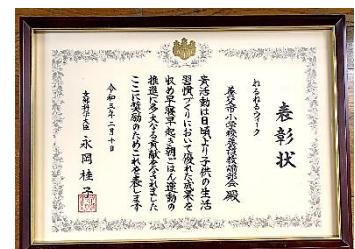 表彰状
ねるねるウィーク
養父市小学校養護教諭部会 殿
貴活動は日頃より子供の生活
習慣づくりにおいて優れた成果を
収め早寝早起き朝ごはん運動の
推進に多大なる貢献をされました
ここに奨励のためこれを表します
令和五年二月十日
文部科学大臣 永岡桂子